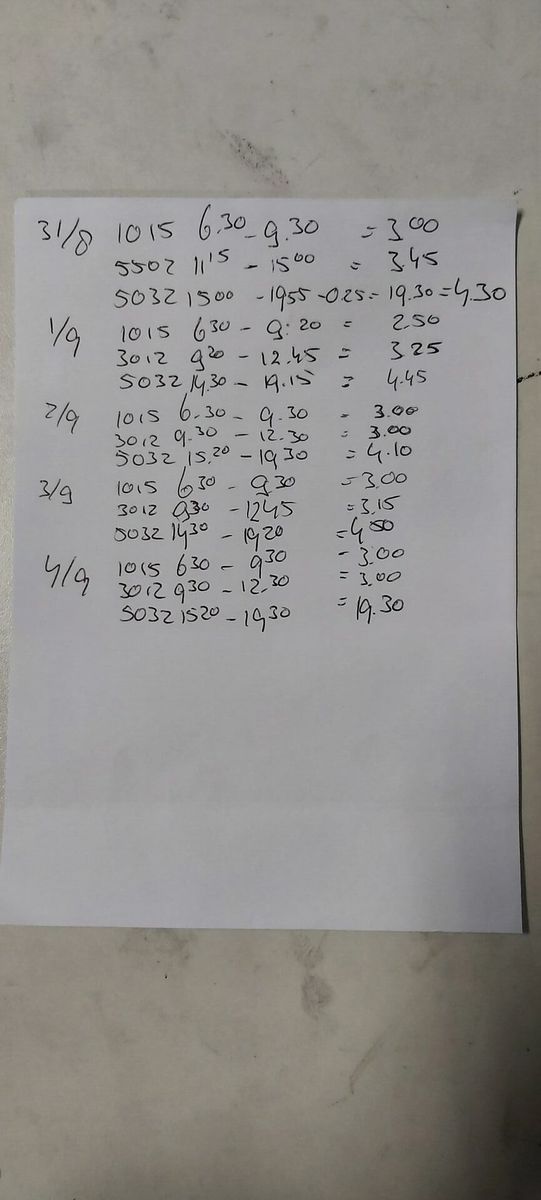 31/8 1015 6.30 - 9.30 = 3.00
5502 11 15 - 15 00 = 3.45
5032 1500 - 1955 - 0.25 = 19.30 = 4.30
1/9 1015 6 30 - 9:20 = 2.50
3012 9 20 - 12.45 = 3 25
5032 14.30 - 19.15 = 4.45
2/9 1015 6.30 - 9.30 = 3.00
3012 9.30 - 12.30 = 3.00
5032 15.20 - 19 30 = 4.10
3/9 1015 6 30 - 9 30 = 3.00
3012 9 30 - 12 45 = 3.15
5032 14 30 - 19 20 = 4 50
4/9 1015 6 30 - 9 30 - 3.00
3012 9 30 - 12.30 = 3.00
5032 15 20 - 19 30 = 19.30